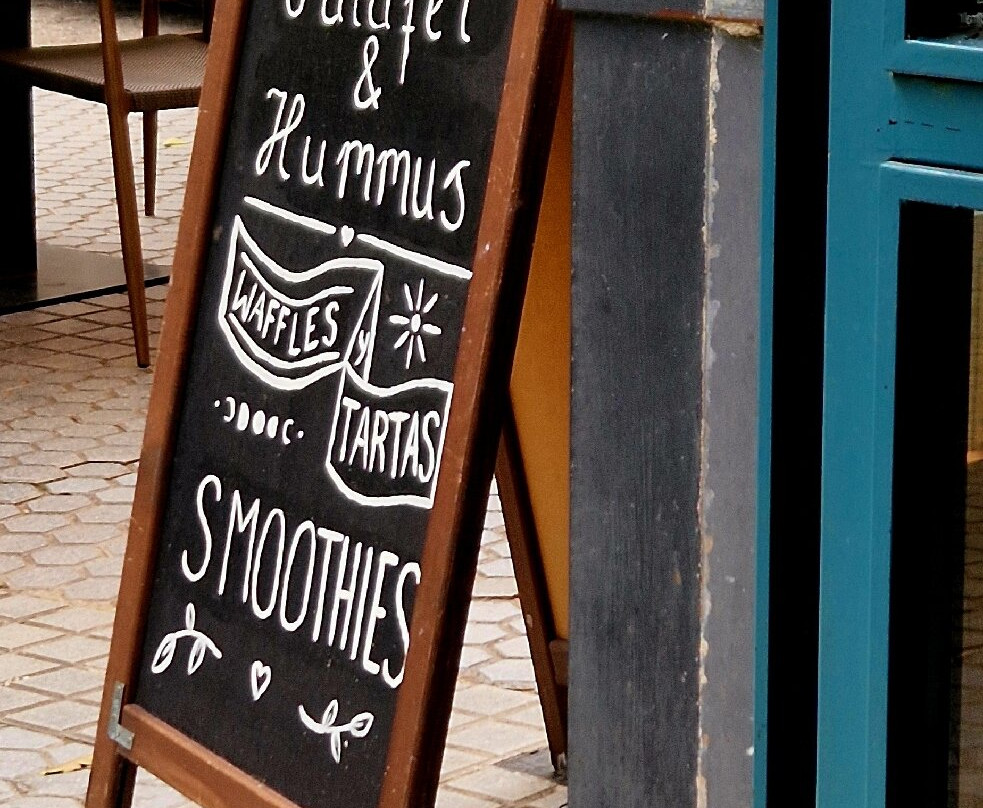 Falafel
&
Hummus
WAFFLES
y
TARTAS
SMOOTHIES